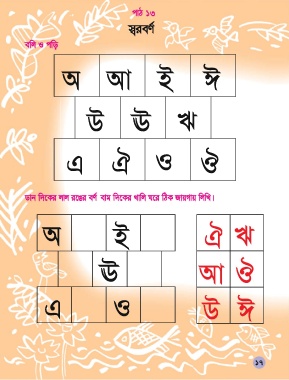 পাঠ ১৩
স্বরবর্ণ
বলি ও পড়ি
অ আ ই ঈ
উ ঊ ঋ
এ ঐ ও ঔ
ডান দিকের লাল রঙের বর্ণ বাম দিকের খালি ঘরে ঠিক জায়গায় লিখি।
অ ই
ঊ
এ ও
ঐ ঋ
আ ঔ
উ ঈ
১৭